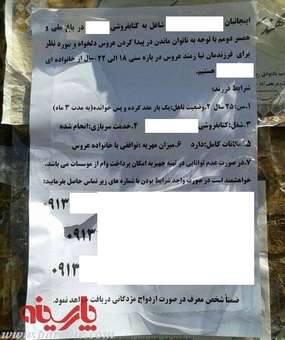 اینجانبان شاغل به کتابفروشی در باغ ملی و
همسر دومم با توجه به ناتوان ماندن در پیدا کردن عروس دلخواه و مورد نظر
برای فرزندمان نیازمند عروس در بازه سنی ۱۸ الی ۲۲ سال از خانواده ای
هستیم.
شرایط فرزند:
۱.سن:۲۵ سال ۲.وضعیت تاهل:یک بار عقد کرده و پس خوانده(به مدت ۳ ماه)
۳.شغل:کتابفروشی ۴.خدمت سربازی:انجام شده
۵.امکانات کامل:دارد ۶.میزان مهریه:توافقی با خانواده عروس
۷.در صورت عدم توانایی در تهیه جهیزیه امکان پرداخت وام از موسسات می باشد.
خواهشمند است در صورت واجد شرایط بودن با شماره های زیر تماس حاصل بفرمایید:
۰۹۱۳
۰۹۱۳
۰۹۱۳
ضمناً شخص معرف در صورت ازدواج مژدگانی دریافت خواهد نمود.
پارسینه